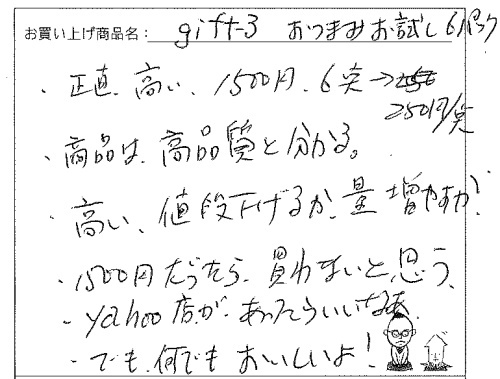 お買い上げ商品名： gift-3 おつまみお試し6パック
・正直、高い、1500円、6実→
250円/実
・商品は、高品質と分かる。
・高い、値段下げるか、量増やすか?
・1500円だったら、買わないと思う、
・yahoo店が、あったらいいなあ、
・でも、何でもおいしいよ!